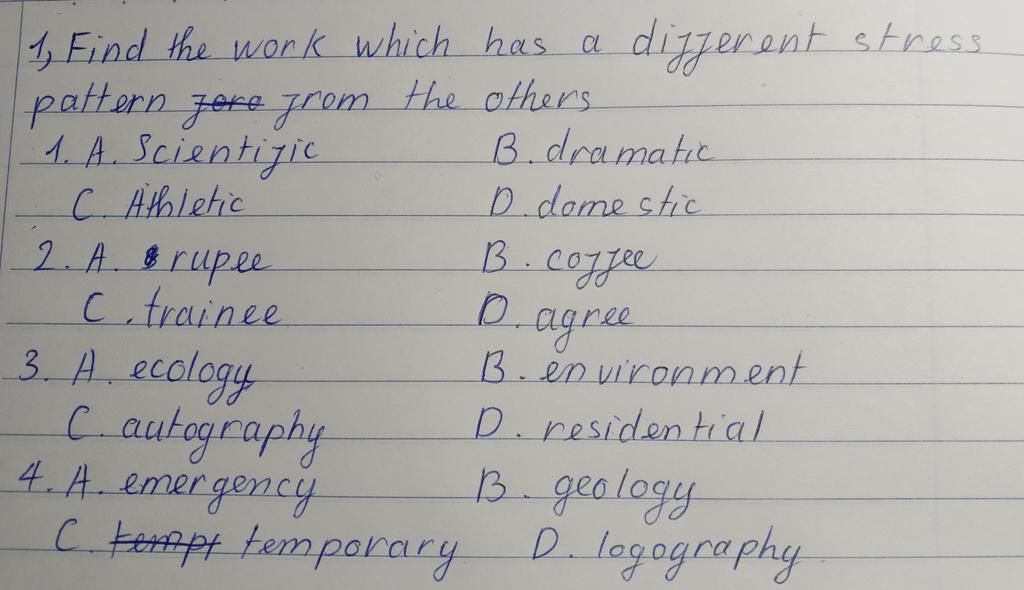 1, Find the work which has a different stress
pattern fore from the others
1. A. Scientific B. dramatic
C. Athletic D. domestic
2. A. rupee B. coffee
C. trainee D. agree
3. A. ecology B. environment
C. autography D. residential
4. A. emergency B. geology
C. tempt temporary D. logography